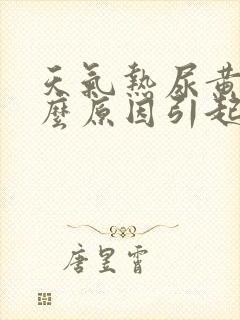 天氣熱尿黃
麼原因引起
唐昱霄